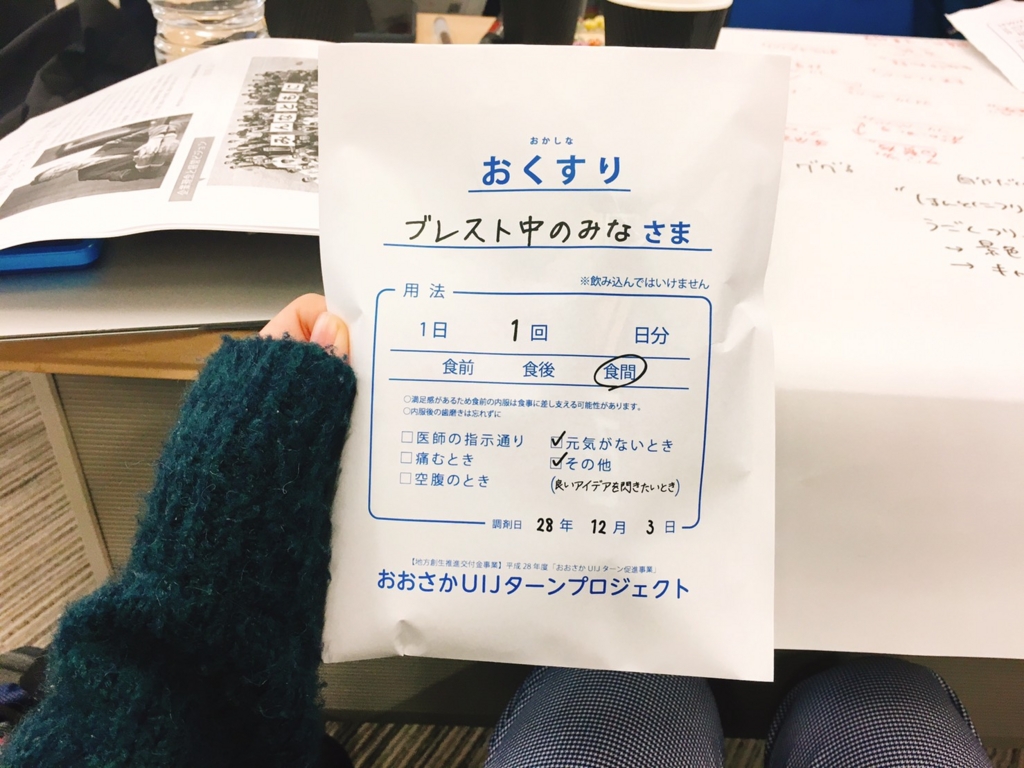 おかしな
おくすり
ブレスト中のみな さま
※飲み込んではいけません
用法
1日 1回 日分
食前 食後 食間
○満足感があるため食前の内服は食事に差し支える可能性があります。
○内服後の歯磨きは忘れずに
□医師の指示通り ☑元気がないとき
□痛むとき ☑その他
□空腹のとき (良いアイデアを閃きたいとき)
調剤日 28年 12月 3日
【地方創生推進交付金事業】平成28年度「おおさかUIJターン促進事業」
おおさかUIJターンプロジェクト